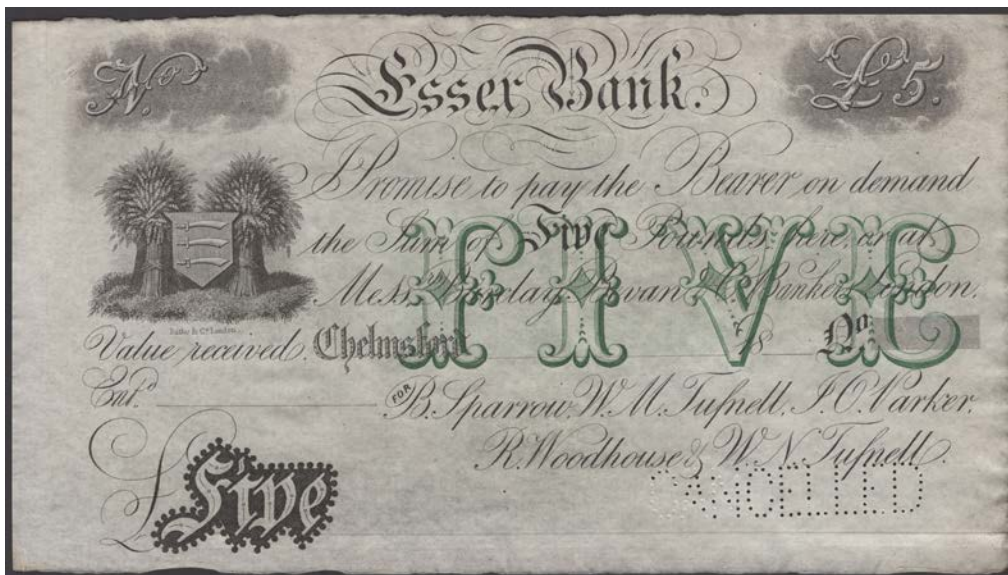 No.
Essex Bank.
£5.
I Promise to pay the Bearer on demand
the Sum of Five Pounds, here, or at
Messrs Barclay, Bevan & Co. Bankers, London.
Value received. Chelmsford 18 No.
Ent.d FOR B. Sparrow, W. M. Tufnell, J. O. Parker,
R. Woodhouse & W. N. Tufnell.
£ Five
FIVE
CANCELLED